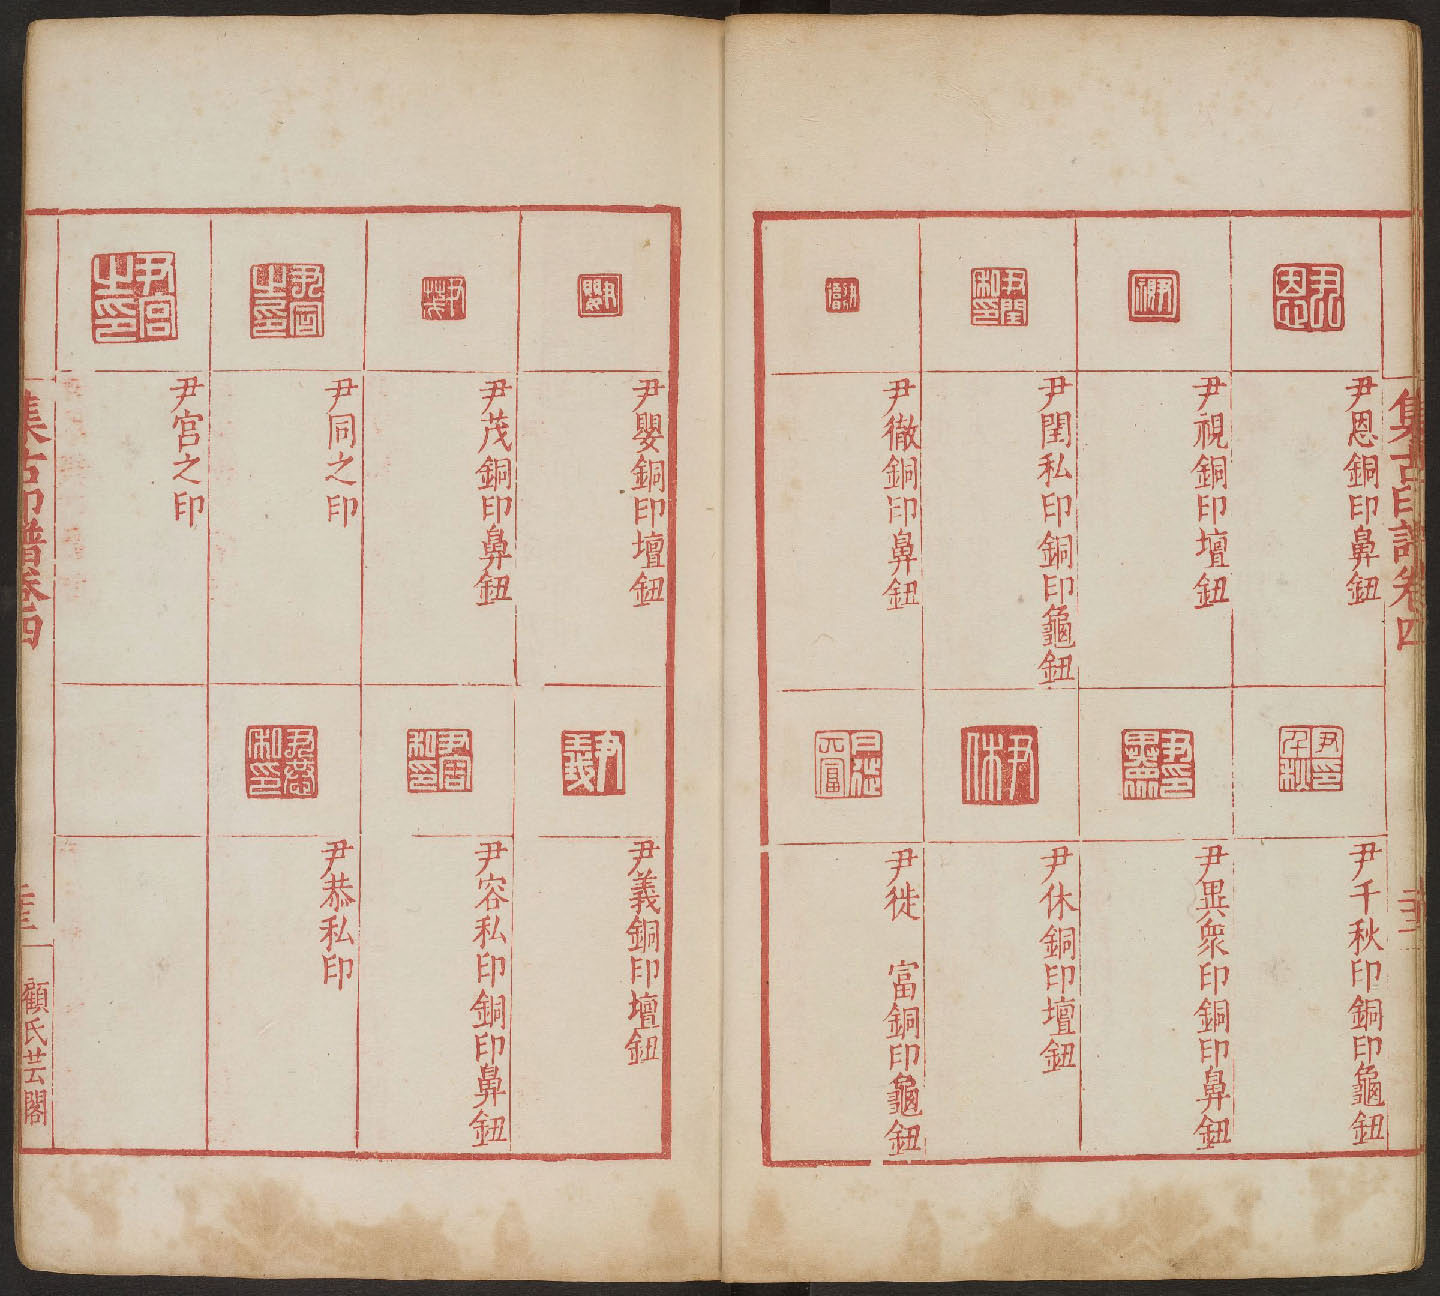 集古印譜卷四
尹恩銅印鼻鈕
尹視銅印壇鈕
尹閏私印銅印龜鈕
尹徹銅印鼻鈕
尹千秋印銅印龜鈕
尹異眾印銅印鼻鈕
尹休銅印壇鈕
尹徙 富銅印龜鈕
尹嬰銅印壇鈕
尹茂銅印鼻鈕
尹同之印
尹宮之印
尹義銅印壇鈕
尹容私印銅印鼻鈕
尹恭私印
集古印譜卷四
顧氏芸閣